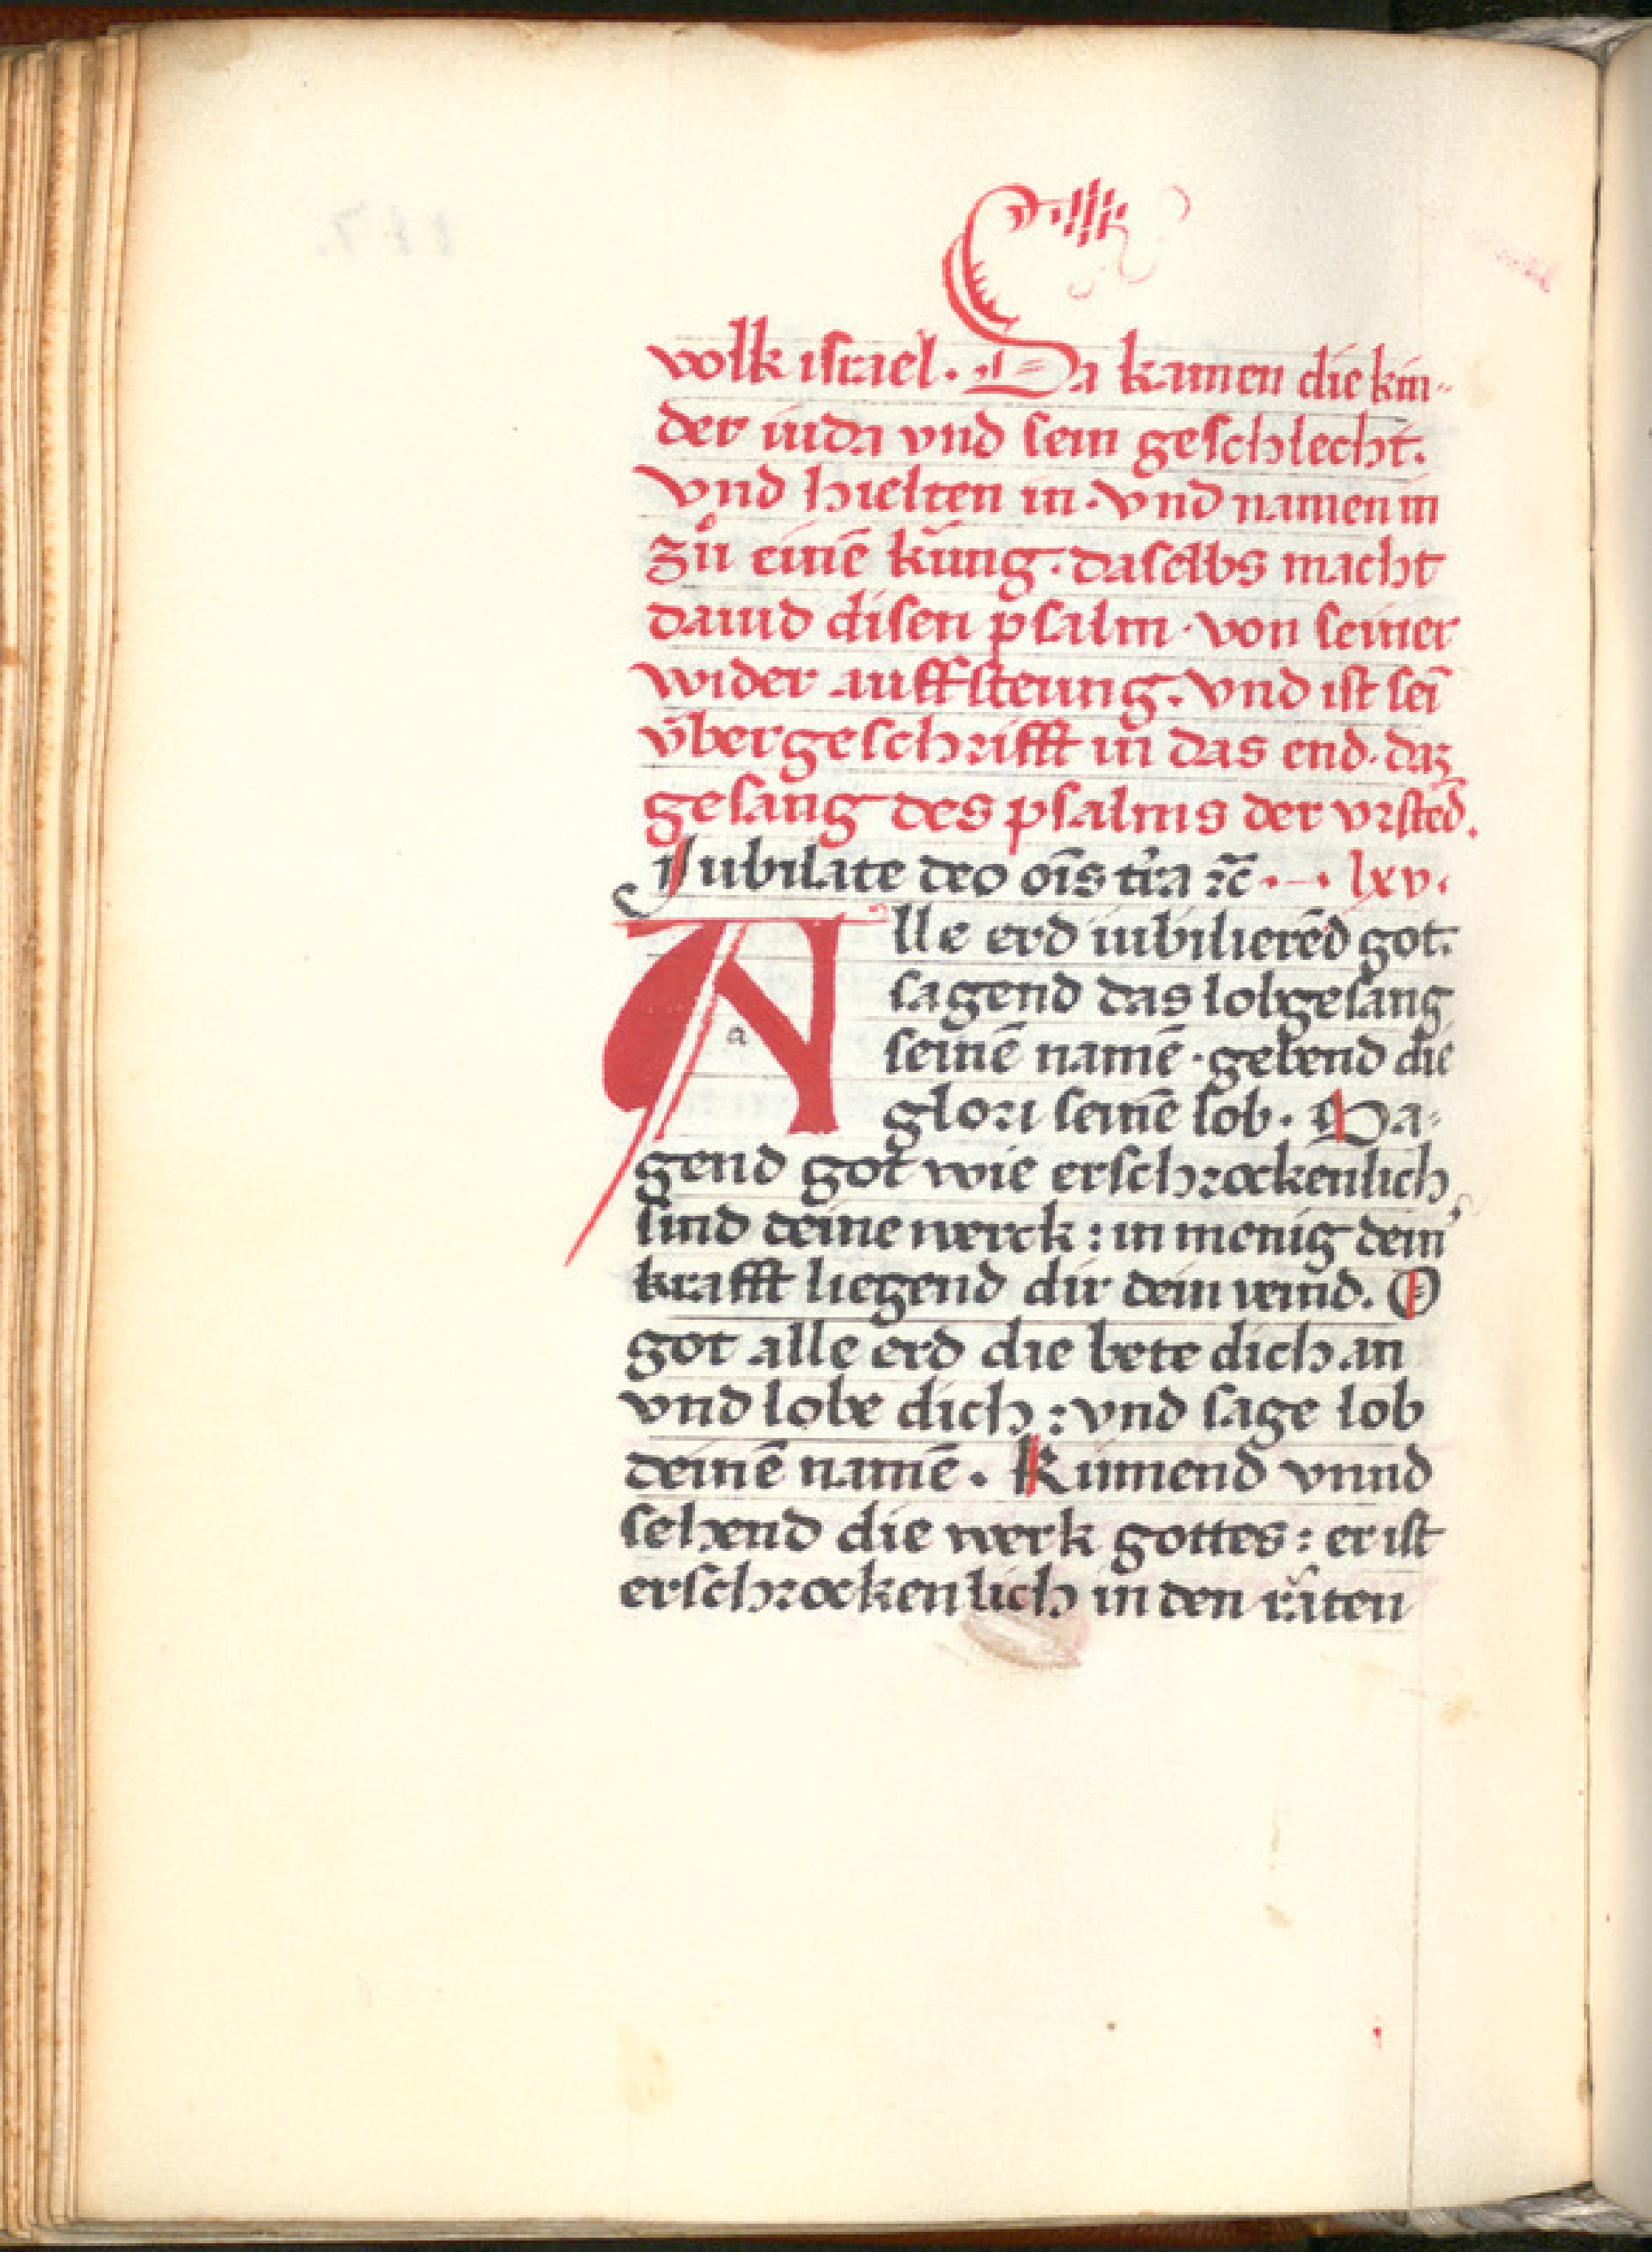 volk israel. Da kamen die kin-
der iuda vnd sein geschlecht.
vnd hielten in. vnd namen in
zů einē kűng. daselbs macht
dauid disen psalm. von seiner
wider auffsteung. vnd ist sei̅
v̈bergeschrifft in das end. daz
gesang des psalms der vrsted̄.
Jubilate deo oi̅s t̾ra ⁊c̄. – . lxv.
Alle erd iubilierēd got.
sagend das lobgesang
a
seinē namē. gebend die
glori seinē lob. Sa-
gend got wie erschrockenlich
sind deine werck: in menig dein᾽
krafft liegend dir dein veind. O
got alle erd die bete dich an
vnd lobe dich: vnd sage lob
deinē namē. Kumend vnnd
sehend die werk gottes: er ist
erschrockenlich in den räten